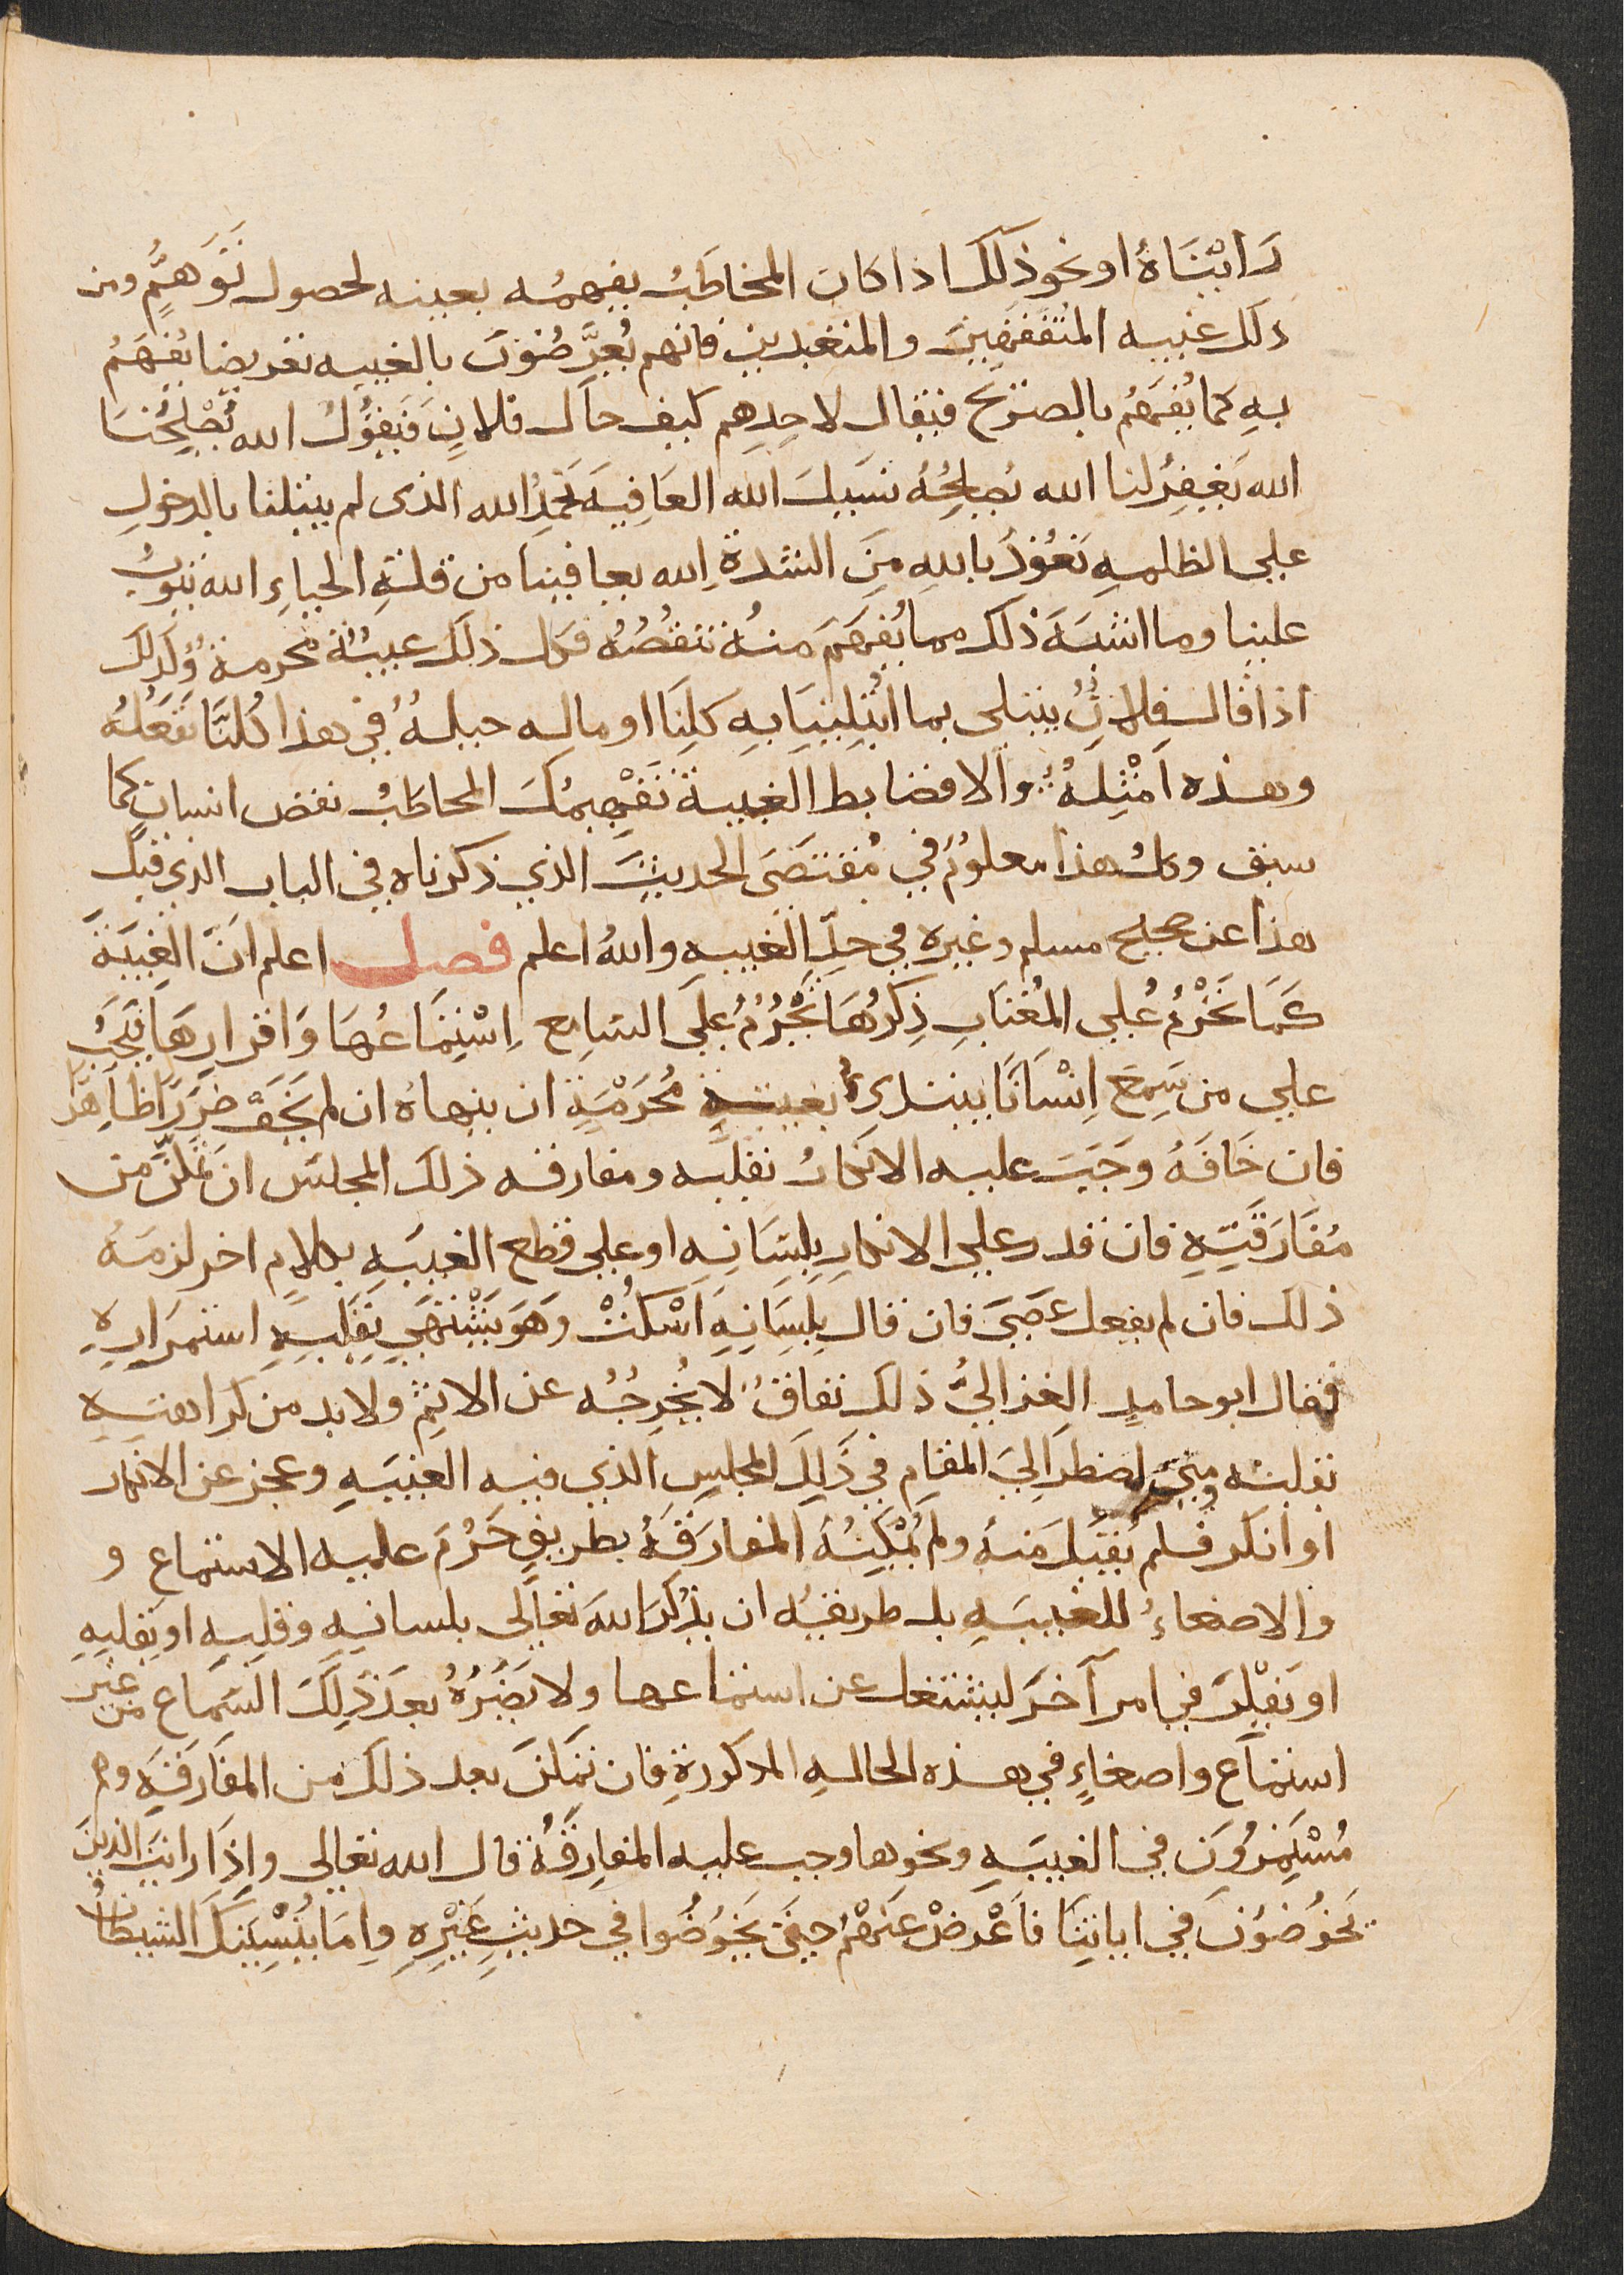 رَايْنَاهُ او نحو ذلك اذا كان المخاطَبُ يفهمُه بعينه لحصول تَوَهمٍ ومن
ذلك غيبه المتُفَفقهينَ والمتعبدين فانهم يُعرَّضُونَ بالغيبه تعريضا يُفهَمُ
بهِ كما يُفهَمُ بالصريح فيقال لاحدِهم كيف حال فلانٍ فَيَقوُلُ الله يُصْلِحُنَا
الله يَغفِرُ لنا الله يُصلِحُهُ نسيلَ الله العَافِيَةَ نَحمَدُ الله الذى لم يبتلنا بالدخولِ
على الظلمهِ نَعُوذُ باللهِ مِنَ الشدة الله يعافينا من قلةِ الحياءِ الله يتوبُ
علينا وما اشبَهَ ذلك مما يُفهَمَ منهُ تنقصُهُ فكل ذلك غيبُةُ محرمة وُكذلك
اذا قال فلانُ يبتلى بما ابْتُلِينَا بهِ كلِنَا او ماله حيلهُ في هذا كُلنَّا نفَعَلُهُ
وهذه امْثِلهُ والا فضابط الغيبة تَفْهِيمُكَ المخاطَبُ نقص انسانٍ كما
سبق وكلُ هذا معلوُمٌ في مُقتضَى الحديثِ الذي ذكرناه في الباب الذي قبلَ
هذا عن صحيح مسلم وغيره في حدِّ الغيبه واللهُ اعلم فصل اعلم انَّ الغِيبَةَ
كَمَا تَحْرُمُ عُلى المُغتَابِ ذِكرُهَا تَحْرُمُ عَلَى السَامِع اِسْتِمَاعُهَا وَاقرارِهَا فيَجَبُ
على من سَمِعَ اِنْسَانًا يبتدىُ بغيبةٍ مُحَرَمَةٍ ان ينهاهُ ان لم يَخَفْ ضرَرًا ظاهَرًا
فان خَافَهُ وَجَبَ عليه الانكارُ بقلبَه ومفارقه ذلك المجلسَ ان تمكَّنَ من
مُفَارَقَتِهِ فان قدر على الانكارِ بلِسَانِه او على قطع الغيبَهِ بكلامٍ اخر لزمَهُ
ذلك فان لم يفعل عَصَىَ فان قال بلِسَانِهِ اَسْكُتْ وَهَوَ يَشْتَهَى بِقَلبِهِ استمَرارِهِ
فقال ابو حامدٍ الغزاليُّ ذلك نفاقُ لا يُخرِجُهُ عن الاثِمْ ولا بد من كراهتِهِ
بقلبُه ومتىَ اضطرَ الىَ المقامِ في ذَلِكَ المجلسِ الذي فيه الغيبَهِ وعجز عن الانكار
او انكَر فلم يُقبَل مَنهُ ولم يُمْكِنُهُ المفارَقَهُ بطريقٍ حَرُمَ عليه الاستماع و
والاصغاءُ للغيبَهِ بل طريقُه ان يذُكُرَ اللهَ تعالى بلسانِهِ وقلبِه او بقلبِهِ
او يَفِكرَ في امر آخَرَ ليشتغل عن استماعها ولا يضَرُهُ بعدَ ذَلِكَ السَماع من غير
استماعَ واصغاءٍ في هذه الحالهِ المذكورةِ فان تمَكنَ بعد ذلك من المفَارَقَهِ وهم
مُسْتَمِرُونَ في الغيبَهِ ونحوها وجب عليه المفارقَهُ قال الله تعالى واِذَا رايتَ الذينَ
يَخوُضوُنَ في اياتِنَا فَاَعْرضْ عَنهُمْ حتىَ يَخوُضُوا في حديثٍ غَيْرِهِ واِمَا يُنْسِيَنكَ الشيطانُ